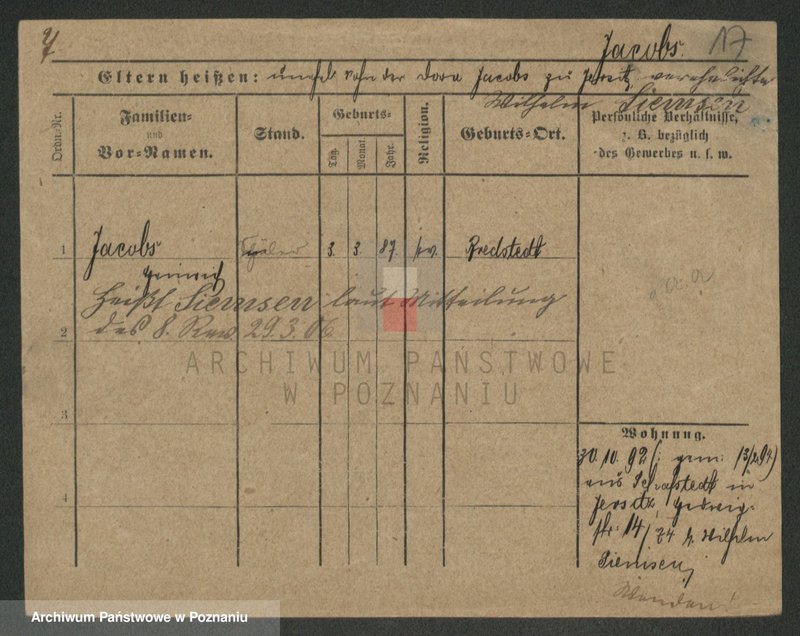 Y.
Jacobs. 17
Eltern heißen: unehel. Sohn der Dora Jacobs zu Jersitz, verehelichte
Wilhelm Siemsen
Ordn.-Nr.
Familien- und Vor-Namen.
Stand.
Geburts-
Tag.
Monat
Jahr.
Religion.
Geburts-Ort.
Persönliche Verhältnisse,
z. B. bezüglich
des Gewerbes u. s. w.
1 Jacobs Schüler 3. 3. 87. ev. Bredstedt
Heinrich
heißt Siemsen laut Mitteilung
2 des 8. Rev. 29.3.06
3
4
Wohnung.
30.10.92 (: gem: 13/2 94)
aus Schafstedt in
Jersitz, Hedwig-
str. 14/24 b. Wilhelm
Siemsen,
ARCHIWUM PAŃSTWOWE
W POZNANIU
Archiwum Państwowe w Poznaniu